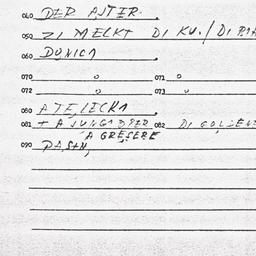 040 DER AJTER.
050 ZI MELKT DI KU./DI
060 DONICA
070 o 071 o
072 o 073 o
080 ATELECKA
081 + A JUNGA 082 DI
A GRESERE
090 PASAN,